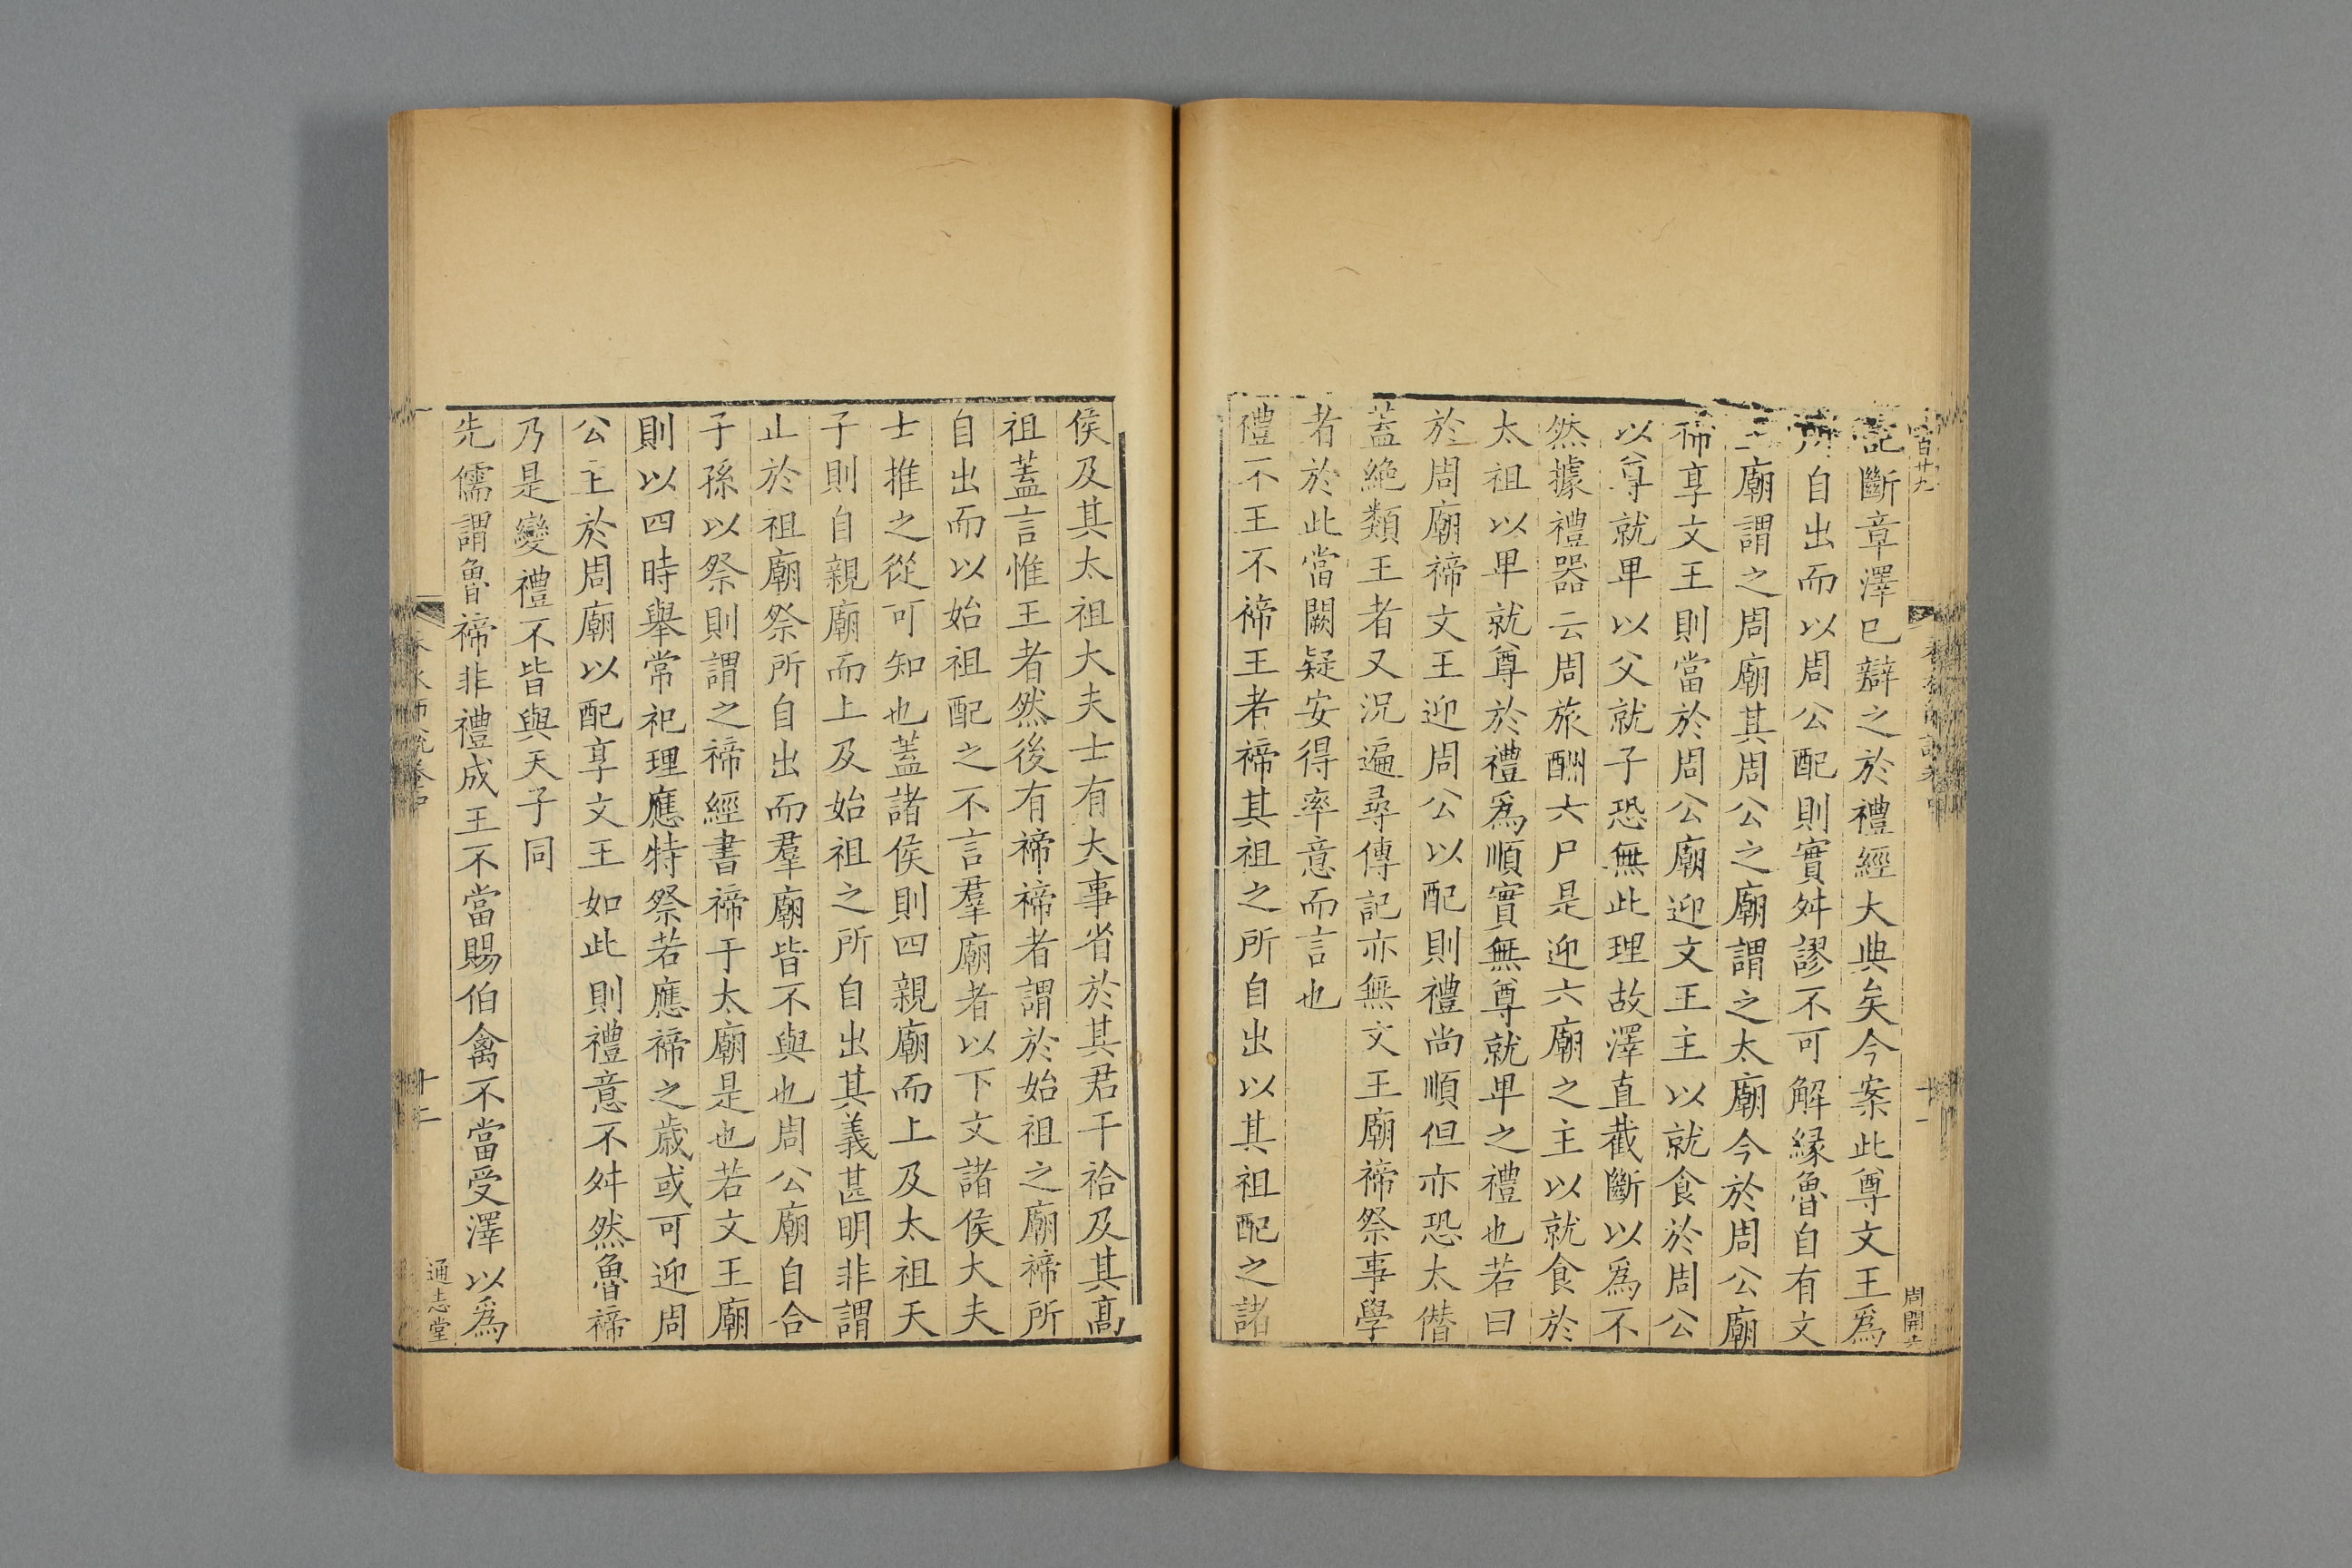 百廿九
記斷章澤巳辯之於禮經大典矣今案此尊文王爲
所自出而以周公配則實舛謬不可解縁魯自有文
王廟謂之周廟其周公之廟謂之太廟今於周公廟
禘享文王則當於周公廟迎文王主以就食於周公
以尊就卑以父就子恐無此理故澤直截斷以爲不
然據禮器云周旅酬六尸是迎六廟之主以就食於
太祖以卑就尊於禮爲順實無尊就卑之禮也若曰
於周廟禘文王迎周公以配則禮尚順但亦恐太僭
蓋絶類王者又況遍尋傳記亦無文王廟禘祭事學
者於此當闕疑安得率意而言也
禮不王不禘王者禘其祖之所自出以其祖配之諸
侯及其太祖大夫士有大事省於其君干祫及其髙
祖蓋言惟王者然後有禘禘者謂於始祖之廟禘所
自出而以始祖配之不言羣廟者以下文諸侯大夫
士推之從可知也蓋諸侯則四親廟而上及太祖天
子則自親廟而上及始祖之所自出其義甚明非謂
止於祖廟祭所自出而羣廟皆不與也周公廟自合
子孫以祭則謂之禘經書禘于太廟是也若文王廟
則以四時舉常祀理應特祭若應禘之歲或可迎周
公主於周廟以配享文王如此則禮意不舛然魯禘
乃是變禮不皆與天子同
先儒謂魯禘非禮成王不當賜伯禽不當受澤以爲
春秋師說卷中
十二
通志堂